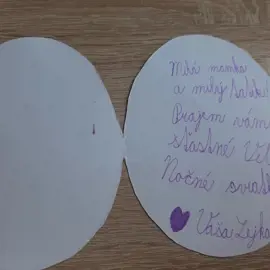 Milá mamka
a milý tatko
Prajem vám
šťastné Veľ
Nočné sviatk
Vaša Lejka